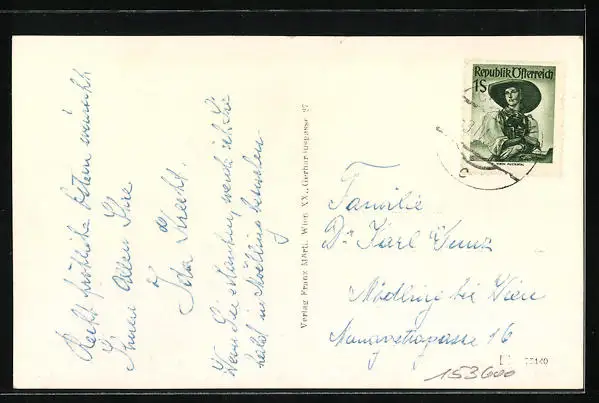 Recht fröhliche Ostern wünscht
Ihnen allen Ihre
Ida
Wenn Sie erlauben, werde ich Sie
in Mödling besuchen.
Verlag Franz Mörth, Wien XX., Gerhardusgasse 27
Republik Österreich
1S
Familie
Dr. Karl
Mödling bei Wien
16
153600